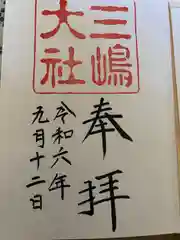 三嶋
大社
奉拝
令和六年
元月十二日